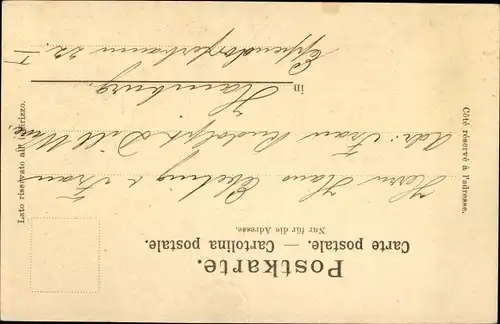 Postkarte.
Carte postale. — Cartolina postale.
Nur für die Adresse.
Herrn Hans Ebeling & Frau
Adr: Frau Rudolph Dill Wwe,
in Hamburg.
Eppendorferbaum 22. I
Côté réservé à l'adresse.
Lato riservato all' indirizzo.